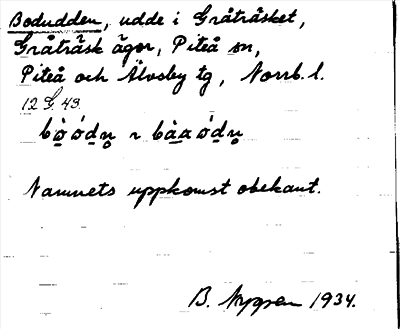 Bodudden, udde i Gråträsket,
Gråträsk ägor, Piteå sn,
Piteå och Älvsby tg, Norrb. l.
12 S. 49.
Namnets uppkomst obekant.
B. Nygren 1934.